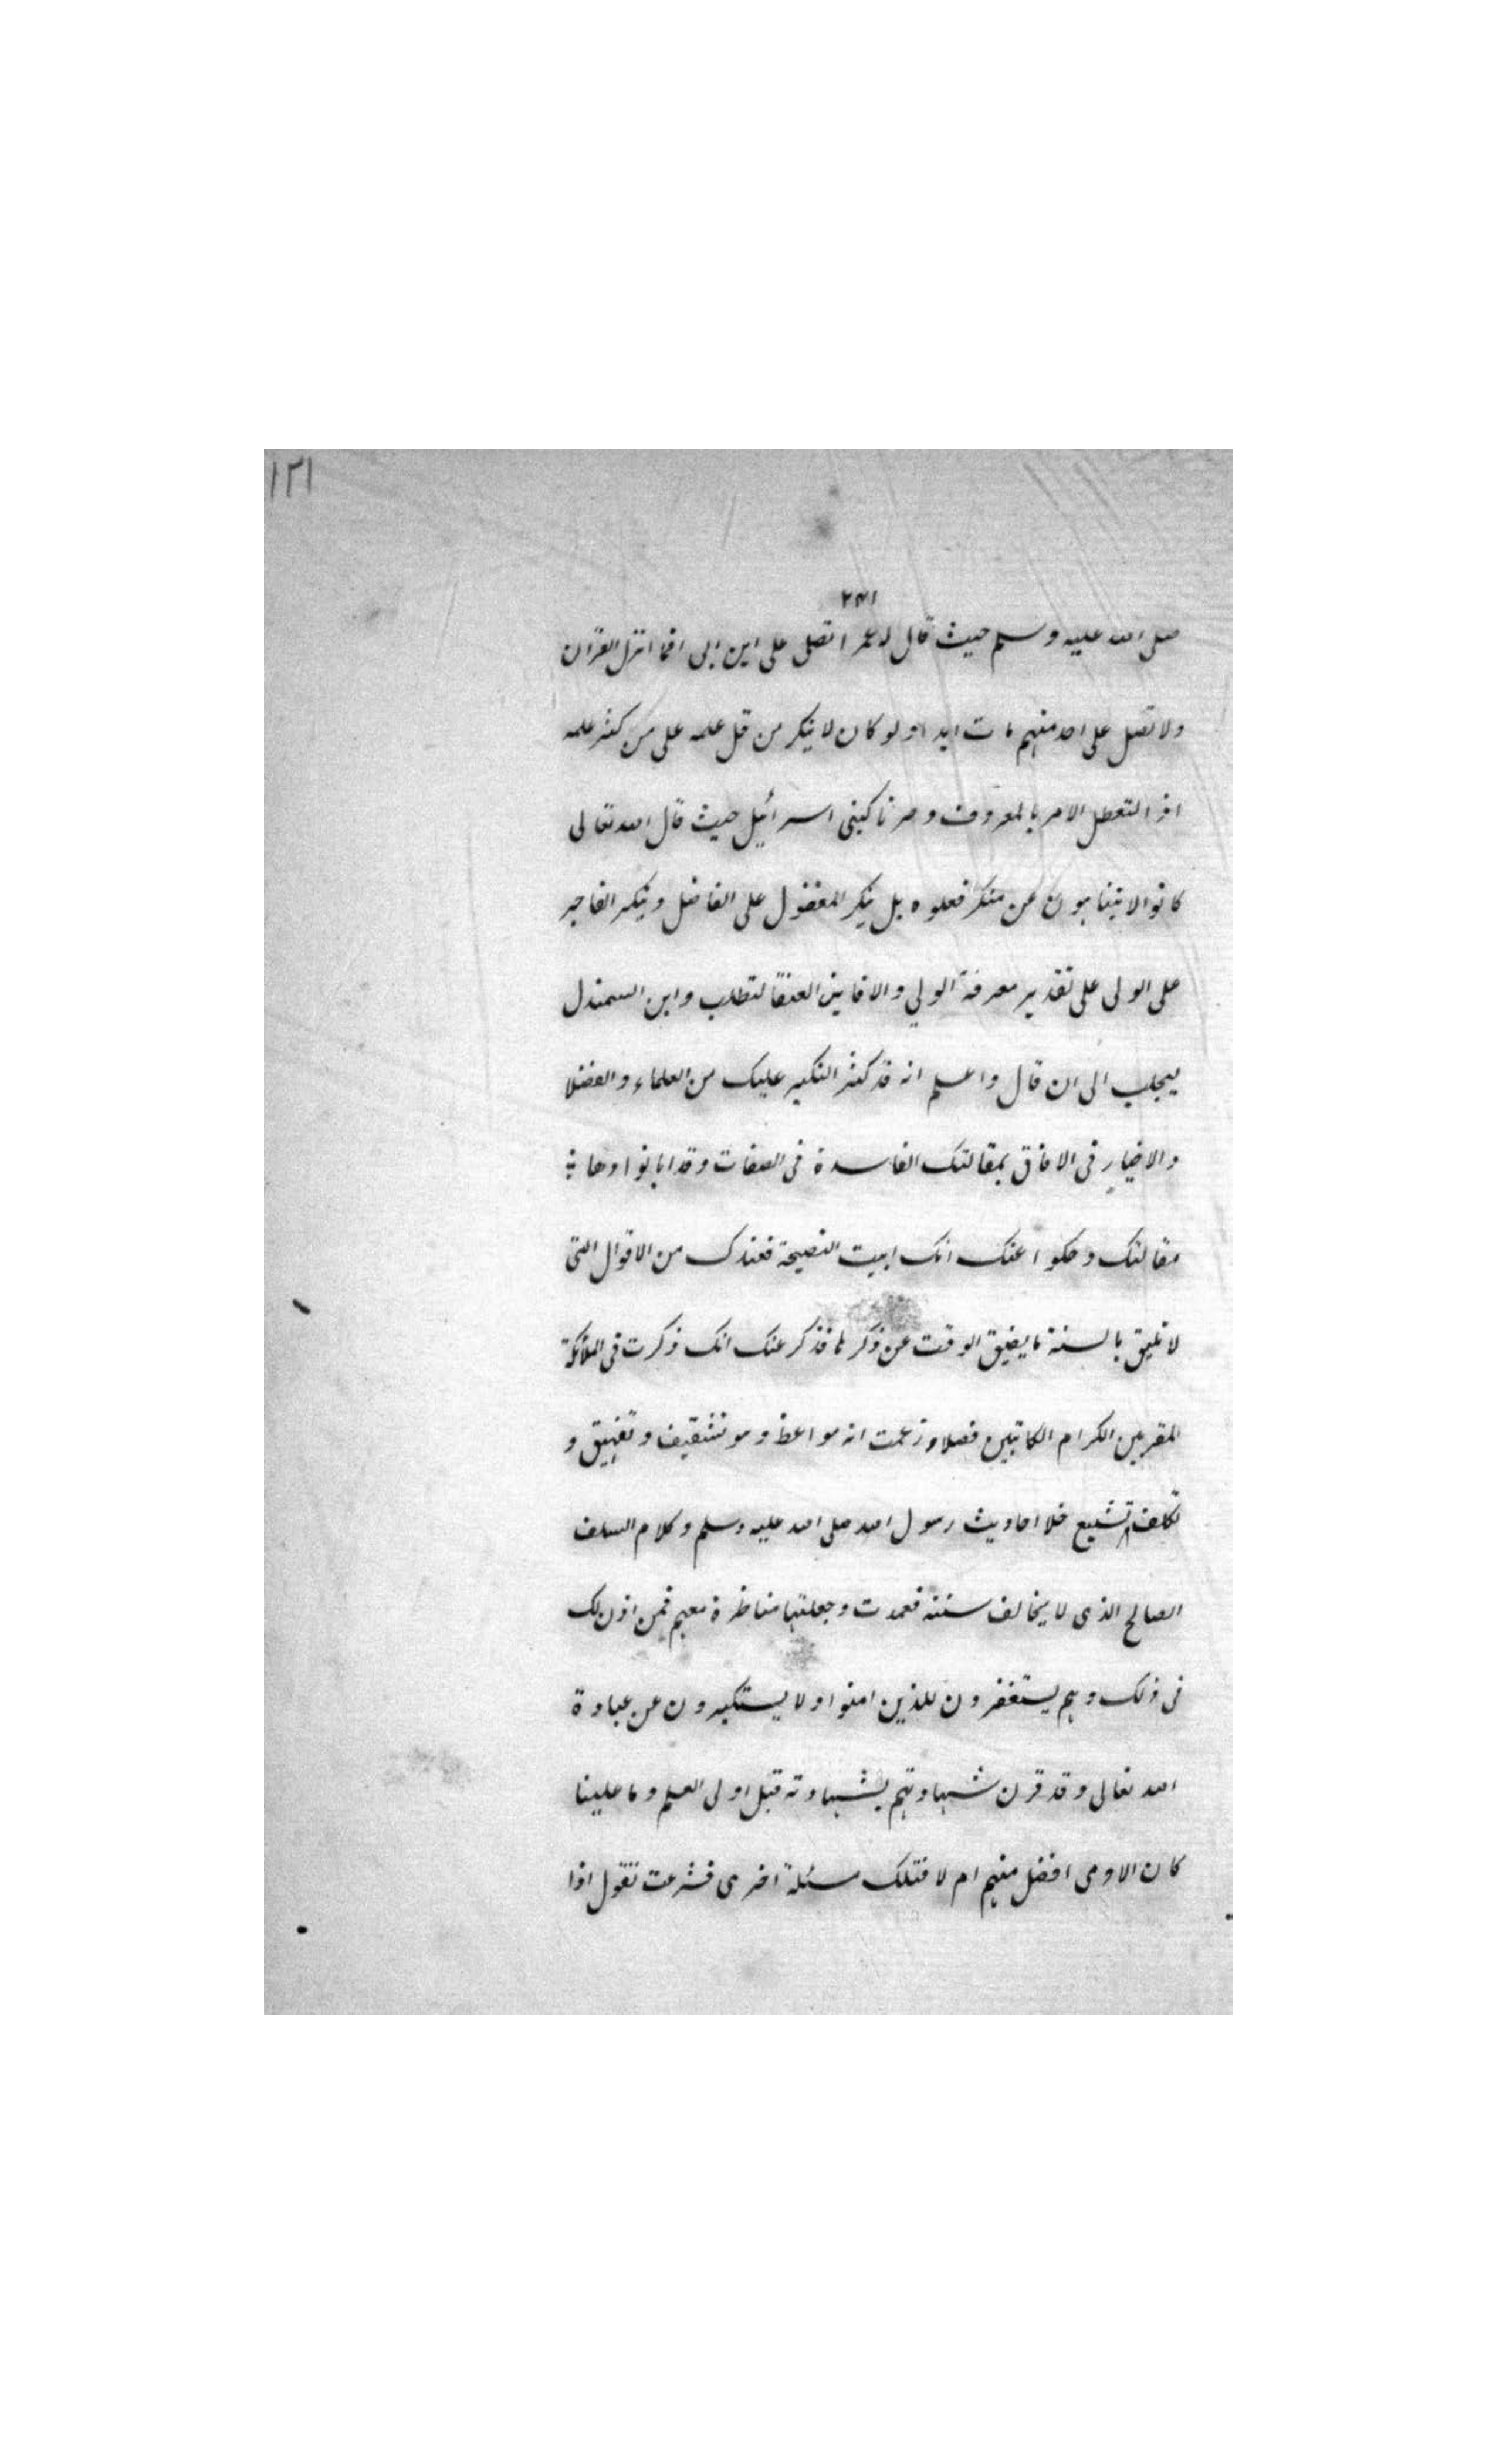 ١٢١
٢٣١
صلى الله عليه وسلم حيث قال له عمر اتصلى على ابن ابى افما انزل القران
ولا تصل على احد منهم مات ابدا ولو كان لا ينكر من قل علمه على من كثر علمه
اذ التعطل الامر بالمعروف وصرنا كبنى اسرائيل حيث قال الله تعالى
كانوا لا يتناهون عن منكر فعلوه بل ينكر المفضول على الفاضل وينكر الفاجر
على الولى على تقدير معرفة الولي والا فاين العنقا لتطلب واين السمندل
ليجلب الى ان قال واعلم انه قد كثر النكير عليك من العلماء والفضلا
والاخيار فى الافاق بمقالتك الفاسدة فى الصفات وقد ابانوا وهاء
مقالتك وحكوا عنك انك ابيت النصيحة فعندك من الاقوال التى
لا تليق بالسنة ما يضيق الوقت عن ذكر لما فذكر عنك انك ذكرت فى الملائكة
المقربين الكرام الكاتبين فصلا وزعمت انه مواعظ وهو تشقيف وتفهيق و
تكلف تشبيع خلا احاديث رسول الله صلى الله عليه وسلم وكلام السلف
الصالح الذى لا يخالف سنته فعمدت وجعلتها مناظرة معهم فمن اذن لك
فى ذلك وهم يستغفرون للذين امنوا ولا يستكبرون عن عبادة
الله تعالى وقد قرن شهادتهم بشهادته قبل اولى العلم وما علينا
كان الادمى افضل منهم ام لا فتلك مسئلة اخرى فشرعت تقول اذا